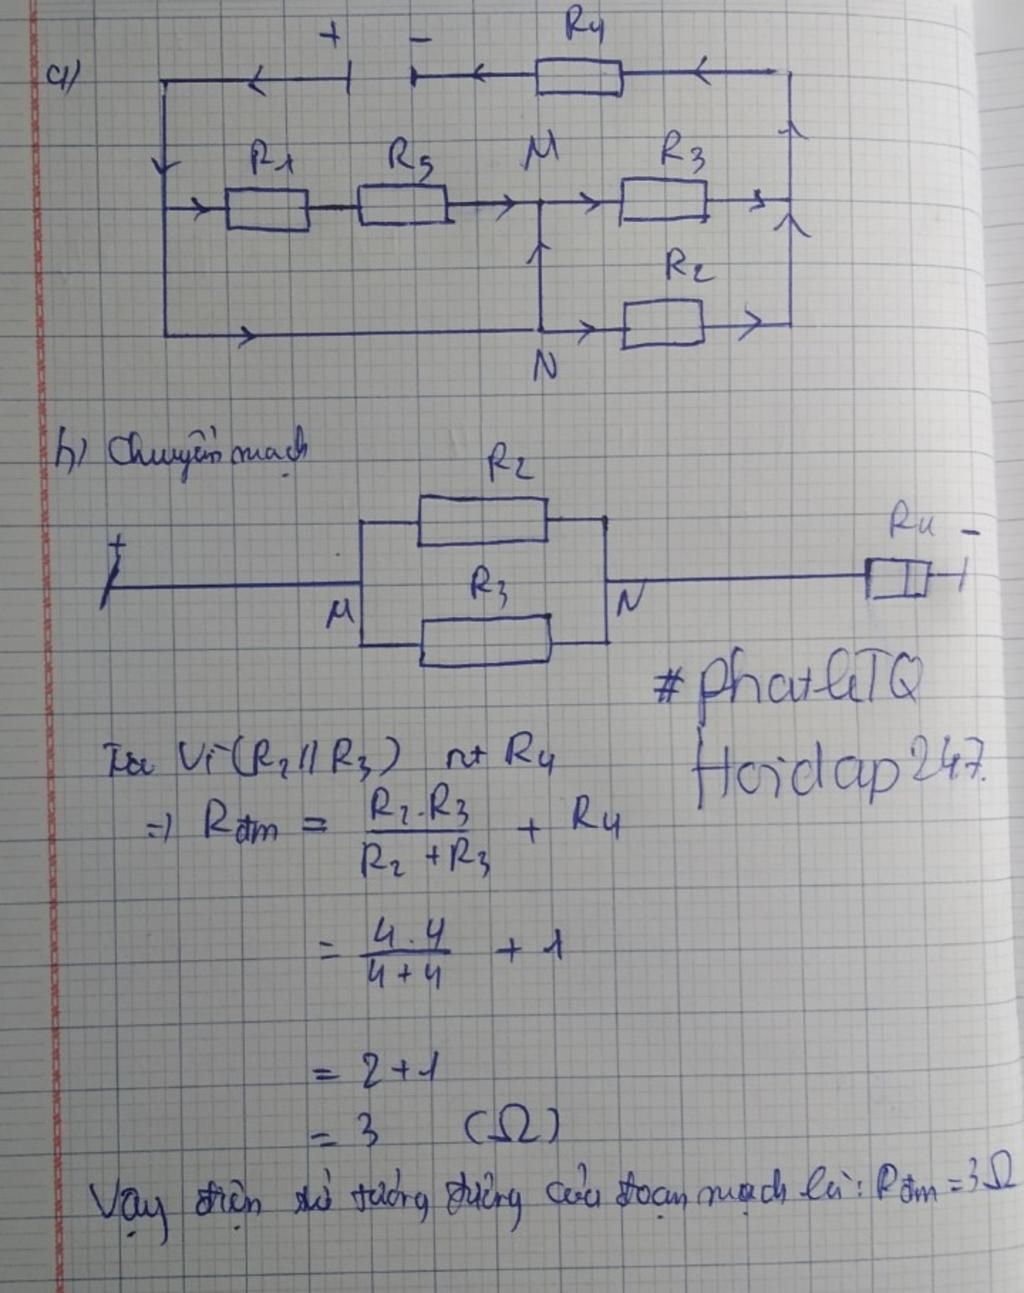 a)
+ - R4
R1 R5 M R3
R2
N
b) Chuyển mạch
R2
+ R4 -
R3
M N
#phatliTQ
Hoidap247.
Ta Vì (R2 // R3) nt R4
=) Rđm = R2.R3 / R2 + R3 + R4
= 4.4 / 4+4 + 1
= 2+1
= 3 (Ω)
Vậy điện trở tương đương của đoạn mạch là: Rđm = 3Ω